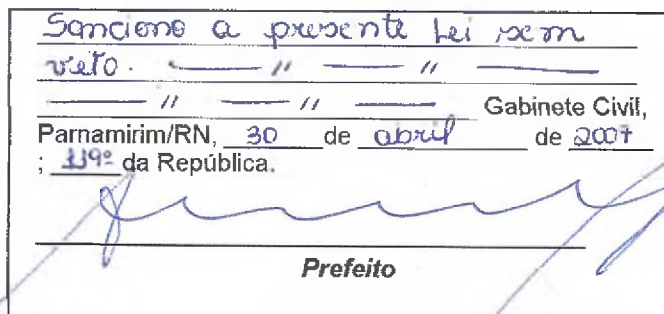 Sanciono a presente Lei sem
veto. — " — " —
— " — " — Gabinete Civil,
Parnamirim/RN, 30 de abril de 2007
; 119º da República.
Prefeito